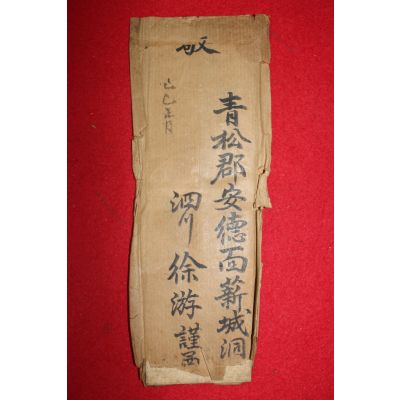 己巳正月
青松郡安德面薪城洞
泗川徐游謹